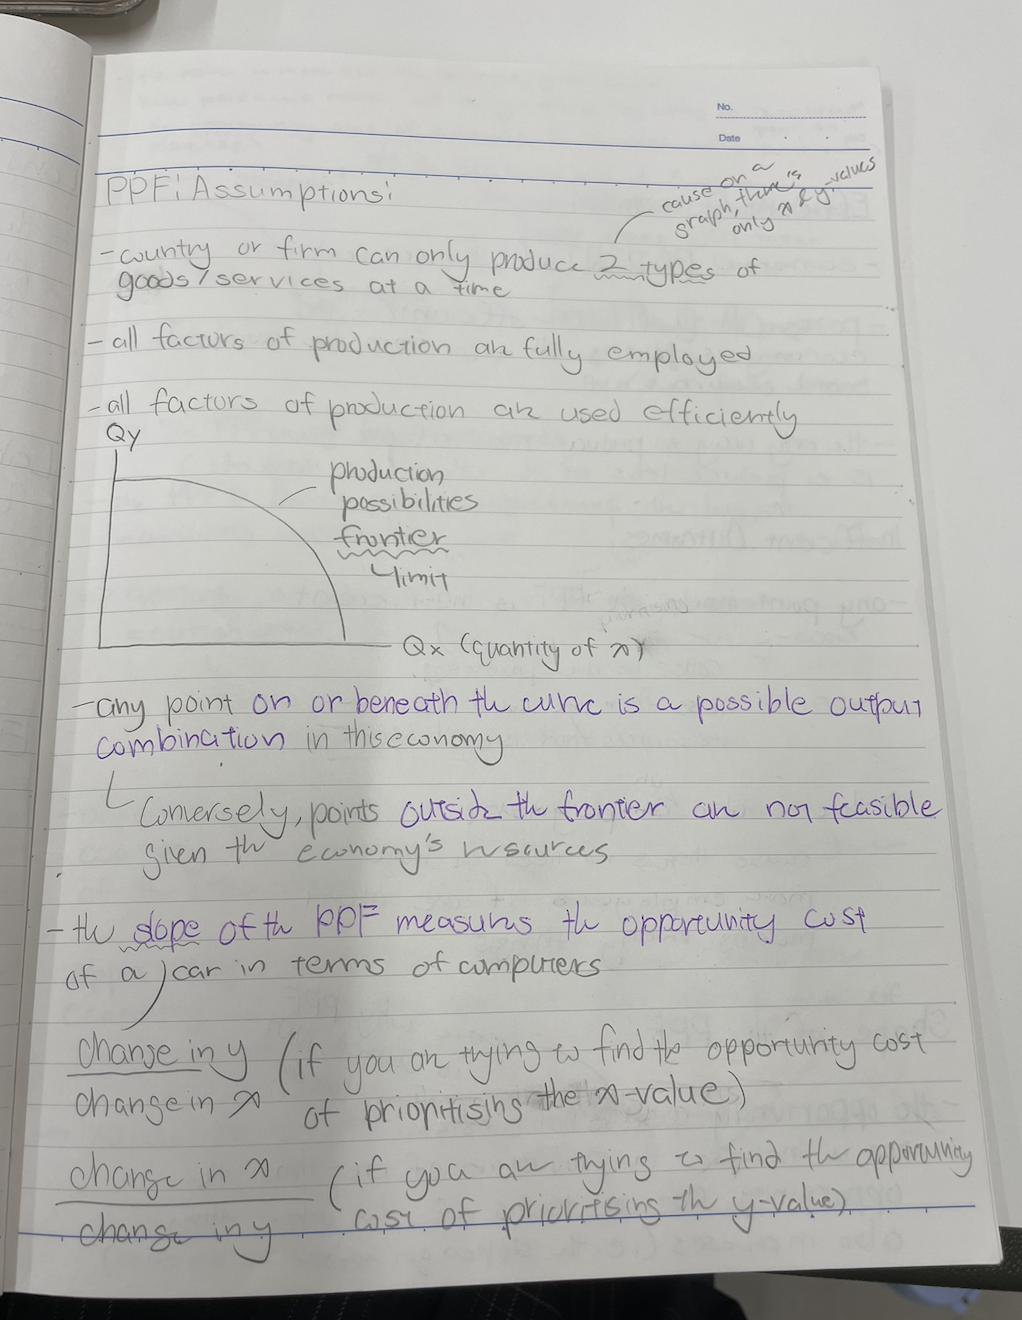 No.
Date
PPF: Assumptions:
cause on a
graph, there's
only x & y-values
- country or firm can only produce 2 types of
goods/services at a time
- all factors of production are fully employed
- all factors of production are used efficiently
Qy
production
possibilities
frontier
limit
Qx (quantity of x)
- any point on or beneath the curve is a possible output
combination in this economy
Conversely, points outside the frontier are not feasible
given the economy's resources
- the slope of the PPF measures the opportunity cost
of a car in terms of computers
change in y (if you are trying to find the opportunity cost
change in x of prioritising the x-value)
change in x (if you are trying to find the opportunity
change in y cost of prioritising the y-value)